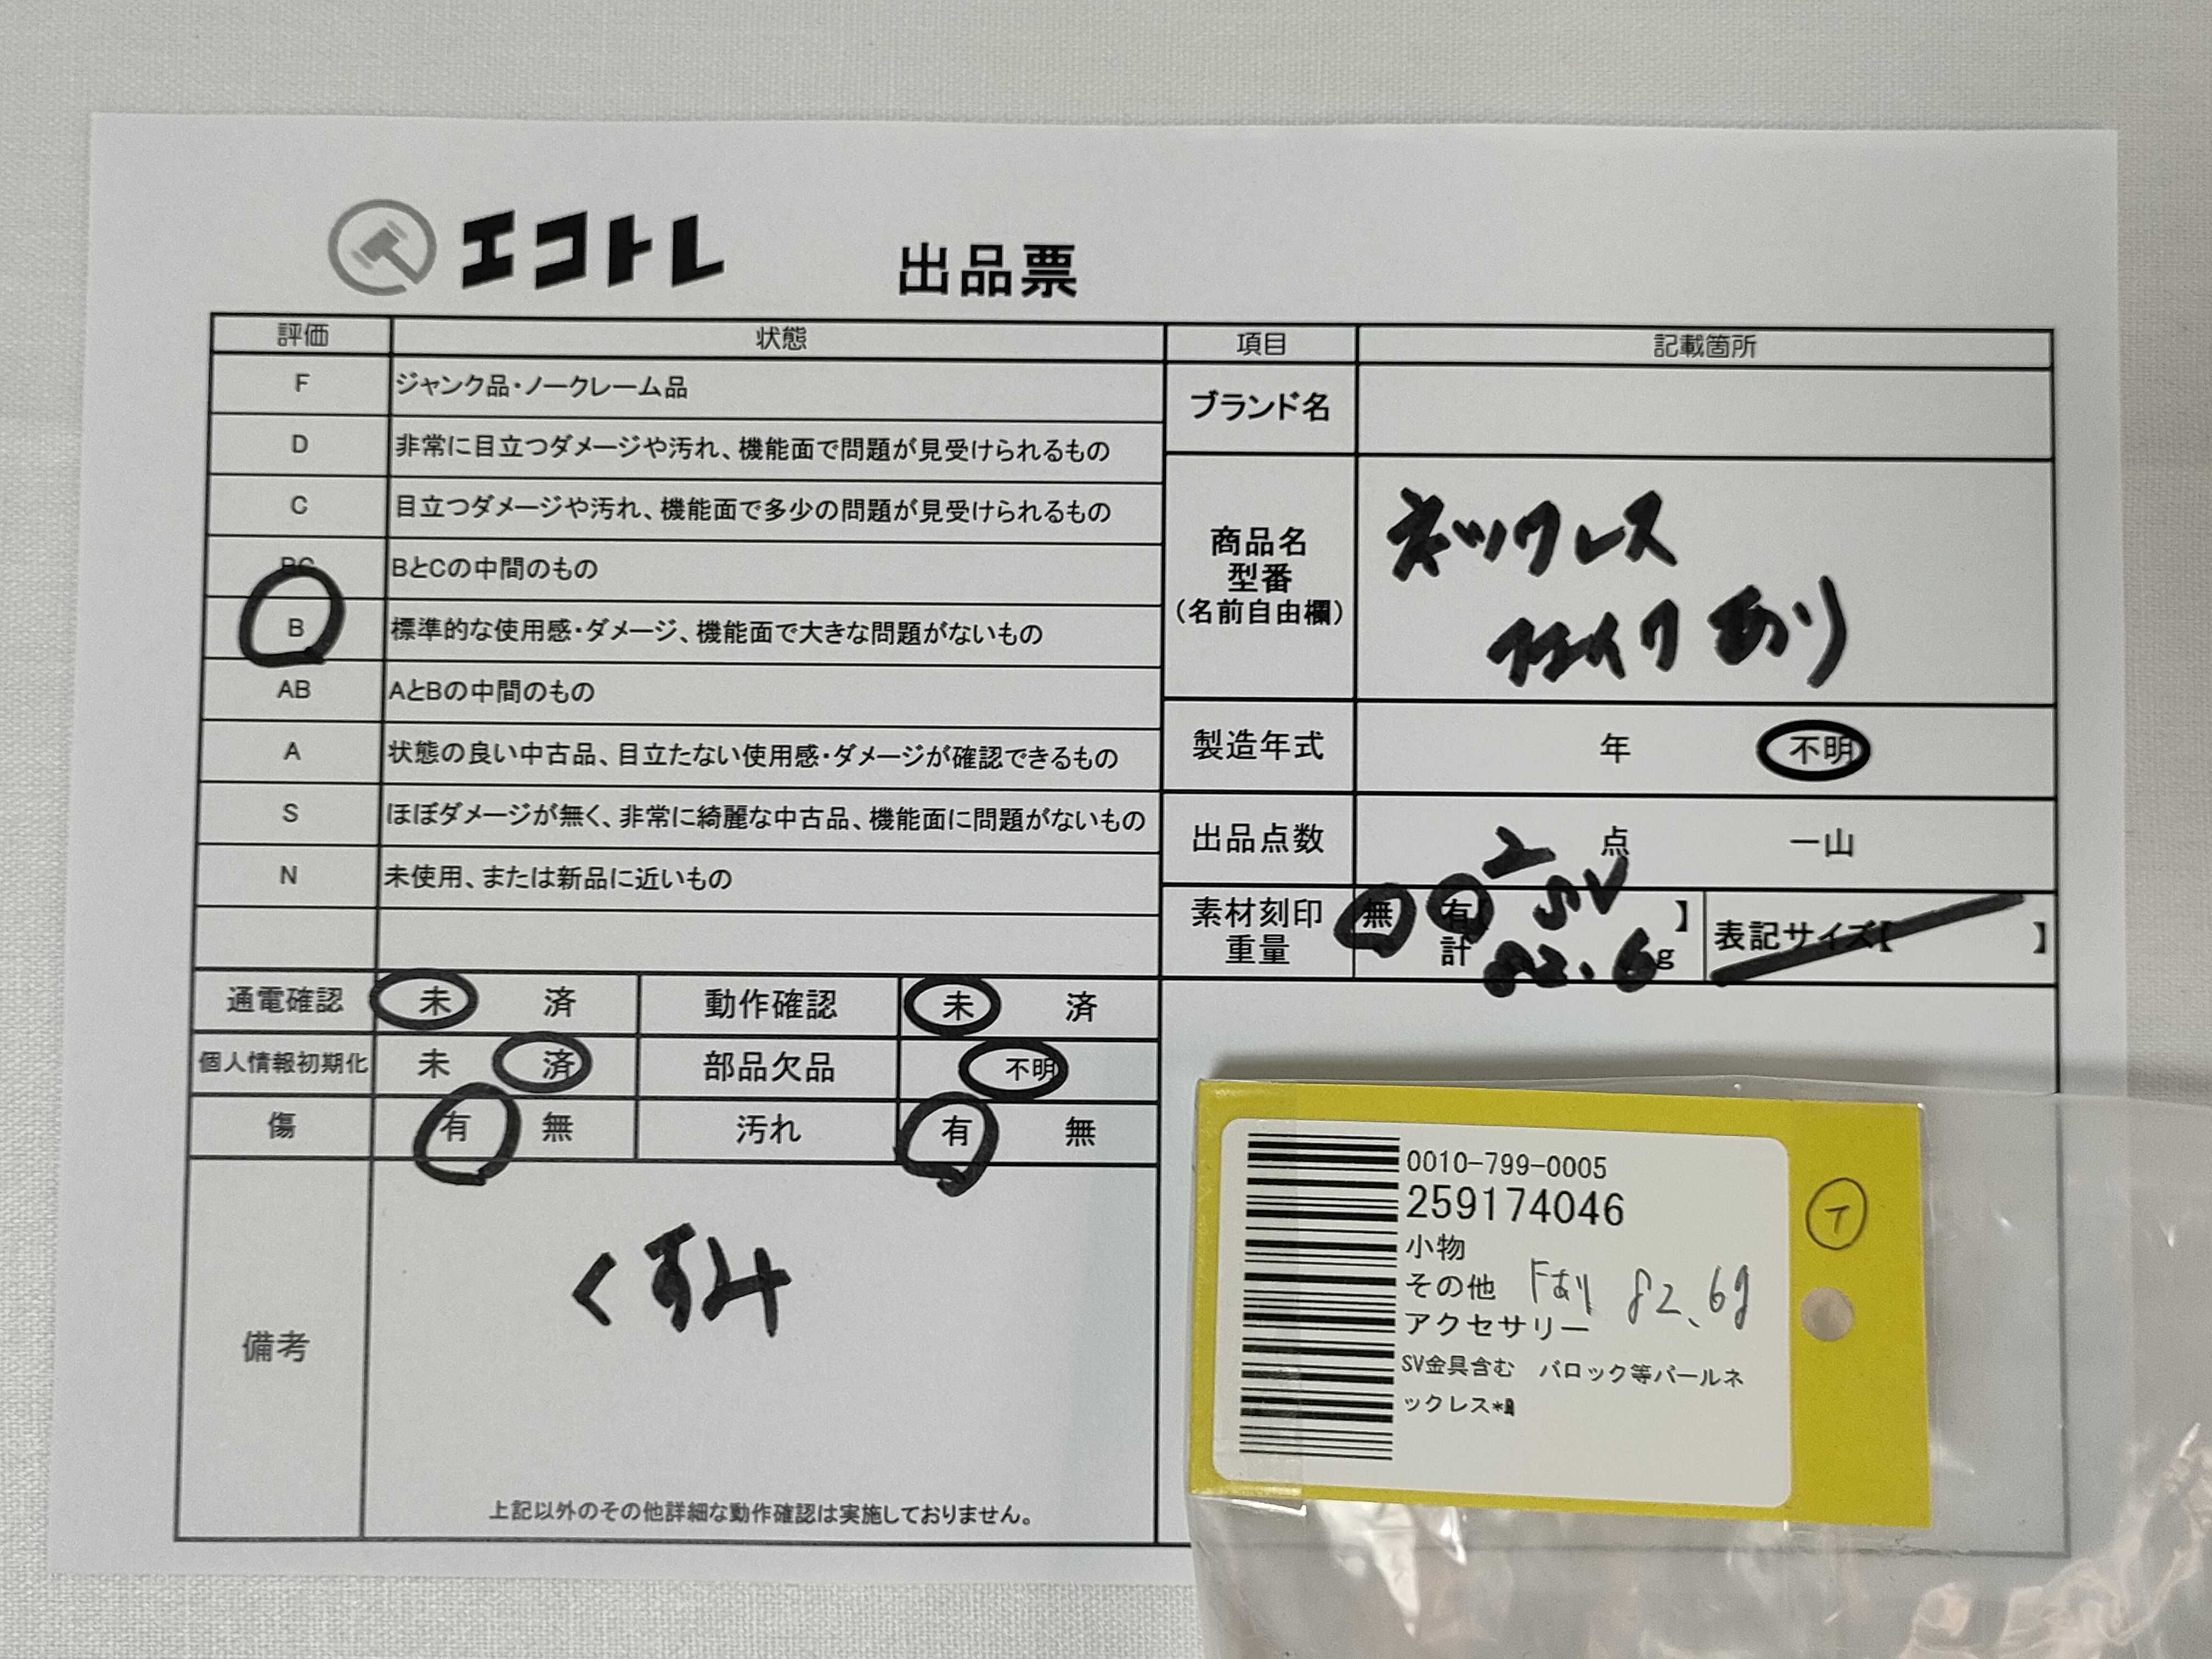 エコトレ 出品票
評価 状態
F ジャンク品・ノークレーム品
D 非常に目立つダメージや汚れ、機能面で問題が見受けられるもの
C 目立つダメージや汚れ、機能面で多少の問題が見受けられるもの
BC BとCの中間のもの
B 標準的な使用感・ダメージ、機能面で大きな問題がないもの
AB AとBの中間のもの
A 状態の良い中古品、目立たない使用感・ダメージが確認できるもの
S ほぼダメージが無く、非常に綺麗な中古品、機能面に問題がないもの
N 未使用、または新品に近いもの
通電確認 未 済 動作確認 未 済
個人情報初期化 未 済 部品欠品 不明
傷 有 無 汚れ 有 無
備考
くすみ
上記以外のその他詳細な動作確認は実施しておりません。
項目 記載箇所
ブランド名
商品名
型番
(名前自由欄)
ネックレス
フェイクあり
製造年式 年 不明
出品点数 2 点 一山
素材刻印 無 有 SV 】
重量 計 82.6 g
表記サイズ【 】
0010-799-0005
259174046
小物
その他 Fあり 82.6g
アクセサリー
SV金具含む バロック等パールネ
ックレス*
イ